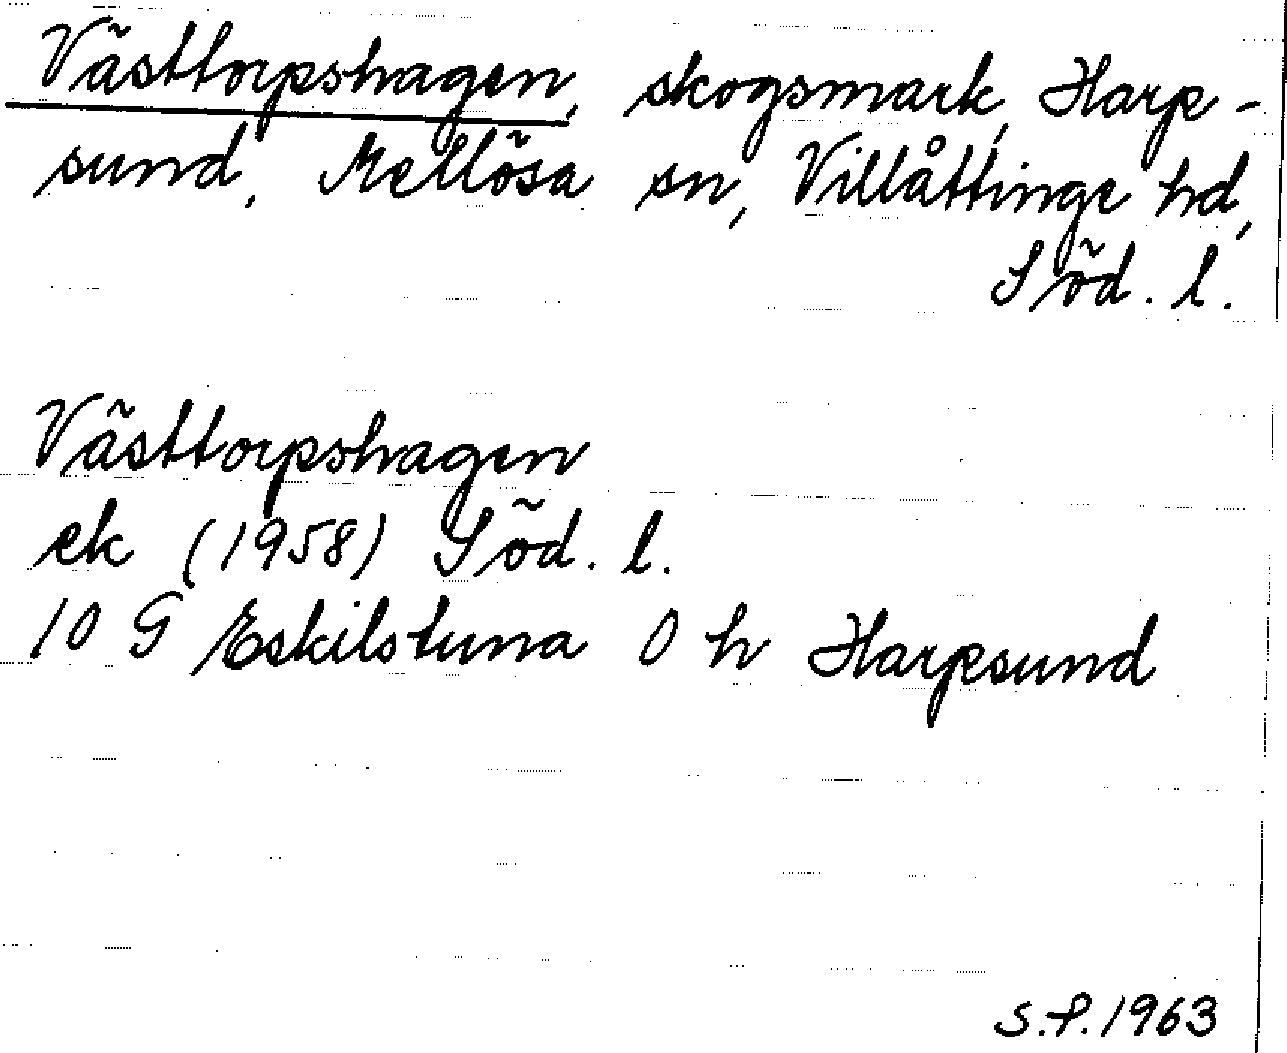 Västtorpshagen, skogsmark, Harp-
sund, Mellösa sn, Villåttinge hd,
Söd. l.
Västtorpshagen
ek (1958) Söd. l.
10 G Eskilstuna 0 h Harpsund
S.P. 1963